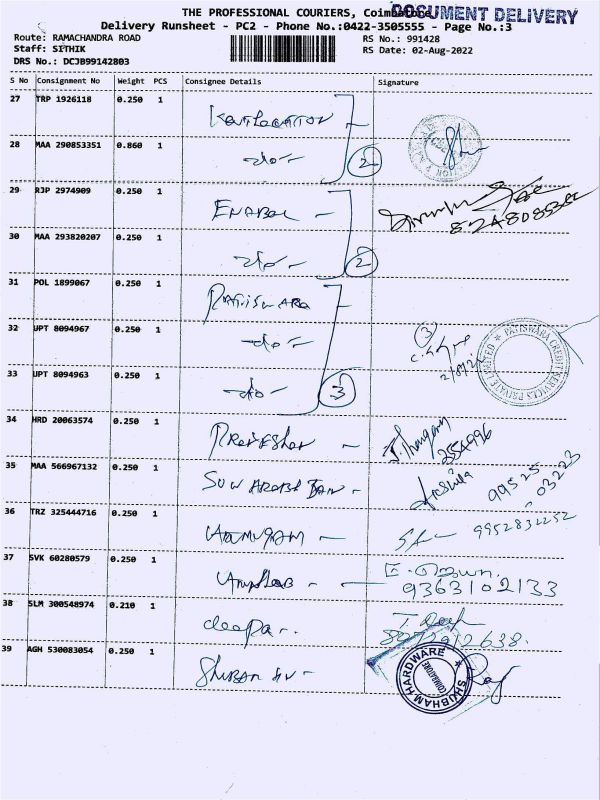 THE PROFESSIONAL COURIERS, Coimbatore
DOCUMENT DELIVERY
Delivery Runsheet - PC2 - Phone No.:0422-3505555 - Page No.:3
Route: RAMACHANDRA ROAD
RS No.: 991428
Staff: SITHIK
RS Date: 02-Aug-2022
DRS No.: DCJB99142803
S No Consignment No Weight PCS Consignee Details Signature
27 TRP 1926118 0.250 1
28 MAA 290853351 0.860 1 -do-
2
29 RJP 2974909 0.250 1
30 MAA 293820207 0.250 1 -do-
2
31 POL 1899067 0.250 1
32 UPT 8094967 0.250 1 -do-
3
PATISWARA CREDIT SERVICES PRIVATE LIMITED
33 UPT 8094963 0.250 1 -do-
3
34 HRD 20063574 0.250 1
35 MAA 566967132 0.250 1
99525
03223
36 TRZ 325444716 0.250 1 9952832252
37 SVK 60280579 0.250 1
9363102133
38 SLM 300548974 0.210 1 deepa
39 AGH 530083054 0.250 1
SHUBHAM HARDWARE
COIMBATORE